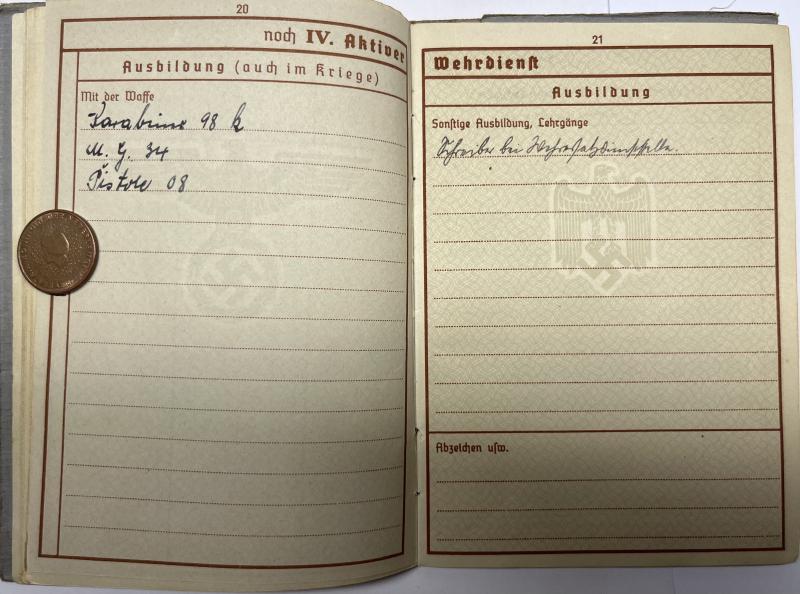 20
noch IV. Aktiver
Ausbildung (auch im Kriege)
Mit der Waffe
Karabiner 98 k
M. G. 34
Pistole 08
21
Wehrdienst
Ausbildung
Sonstige Ausbildung, Lehrgänge
Schreiber bei Wehrersatzdienststelle.
Abzeichen usw.